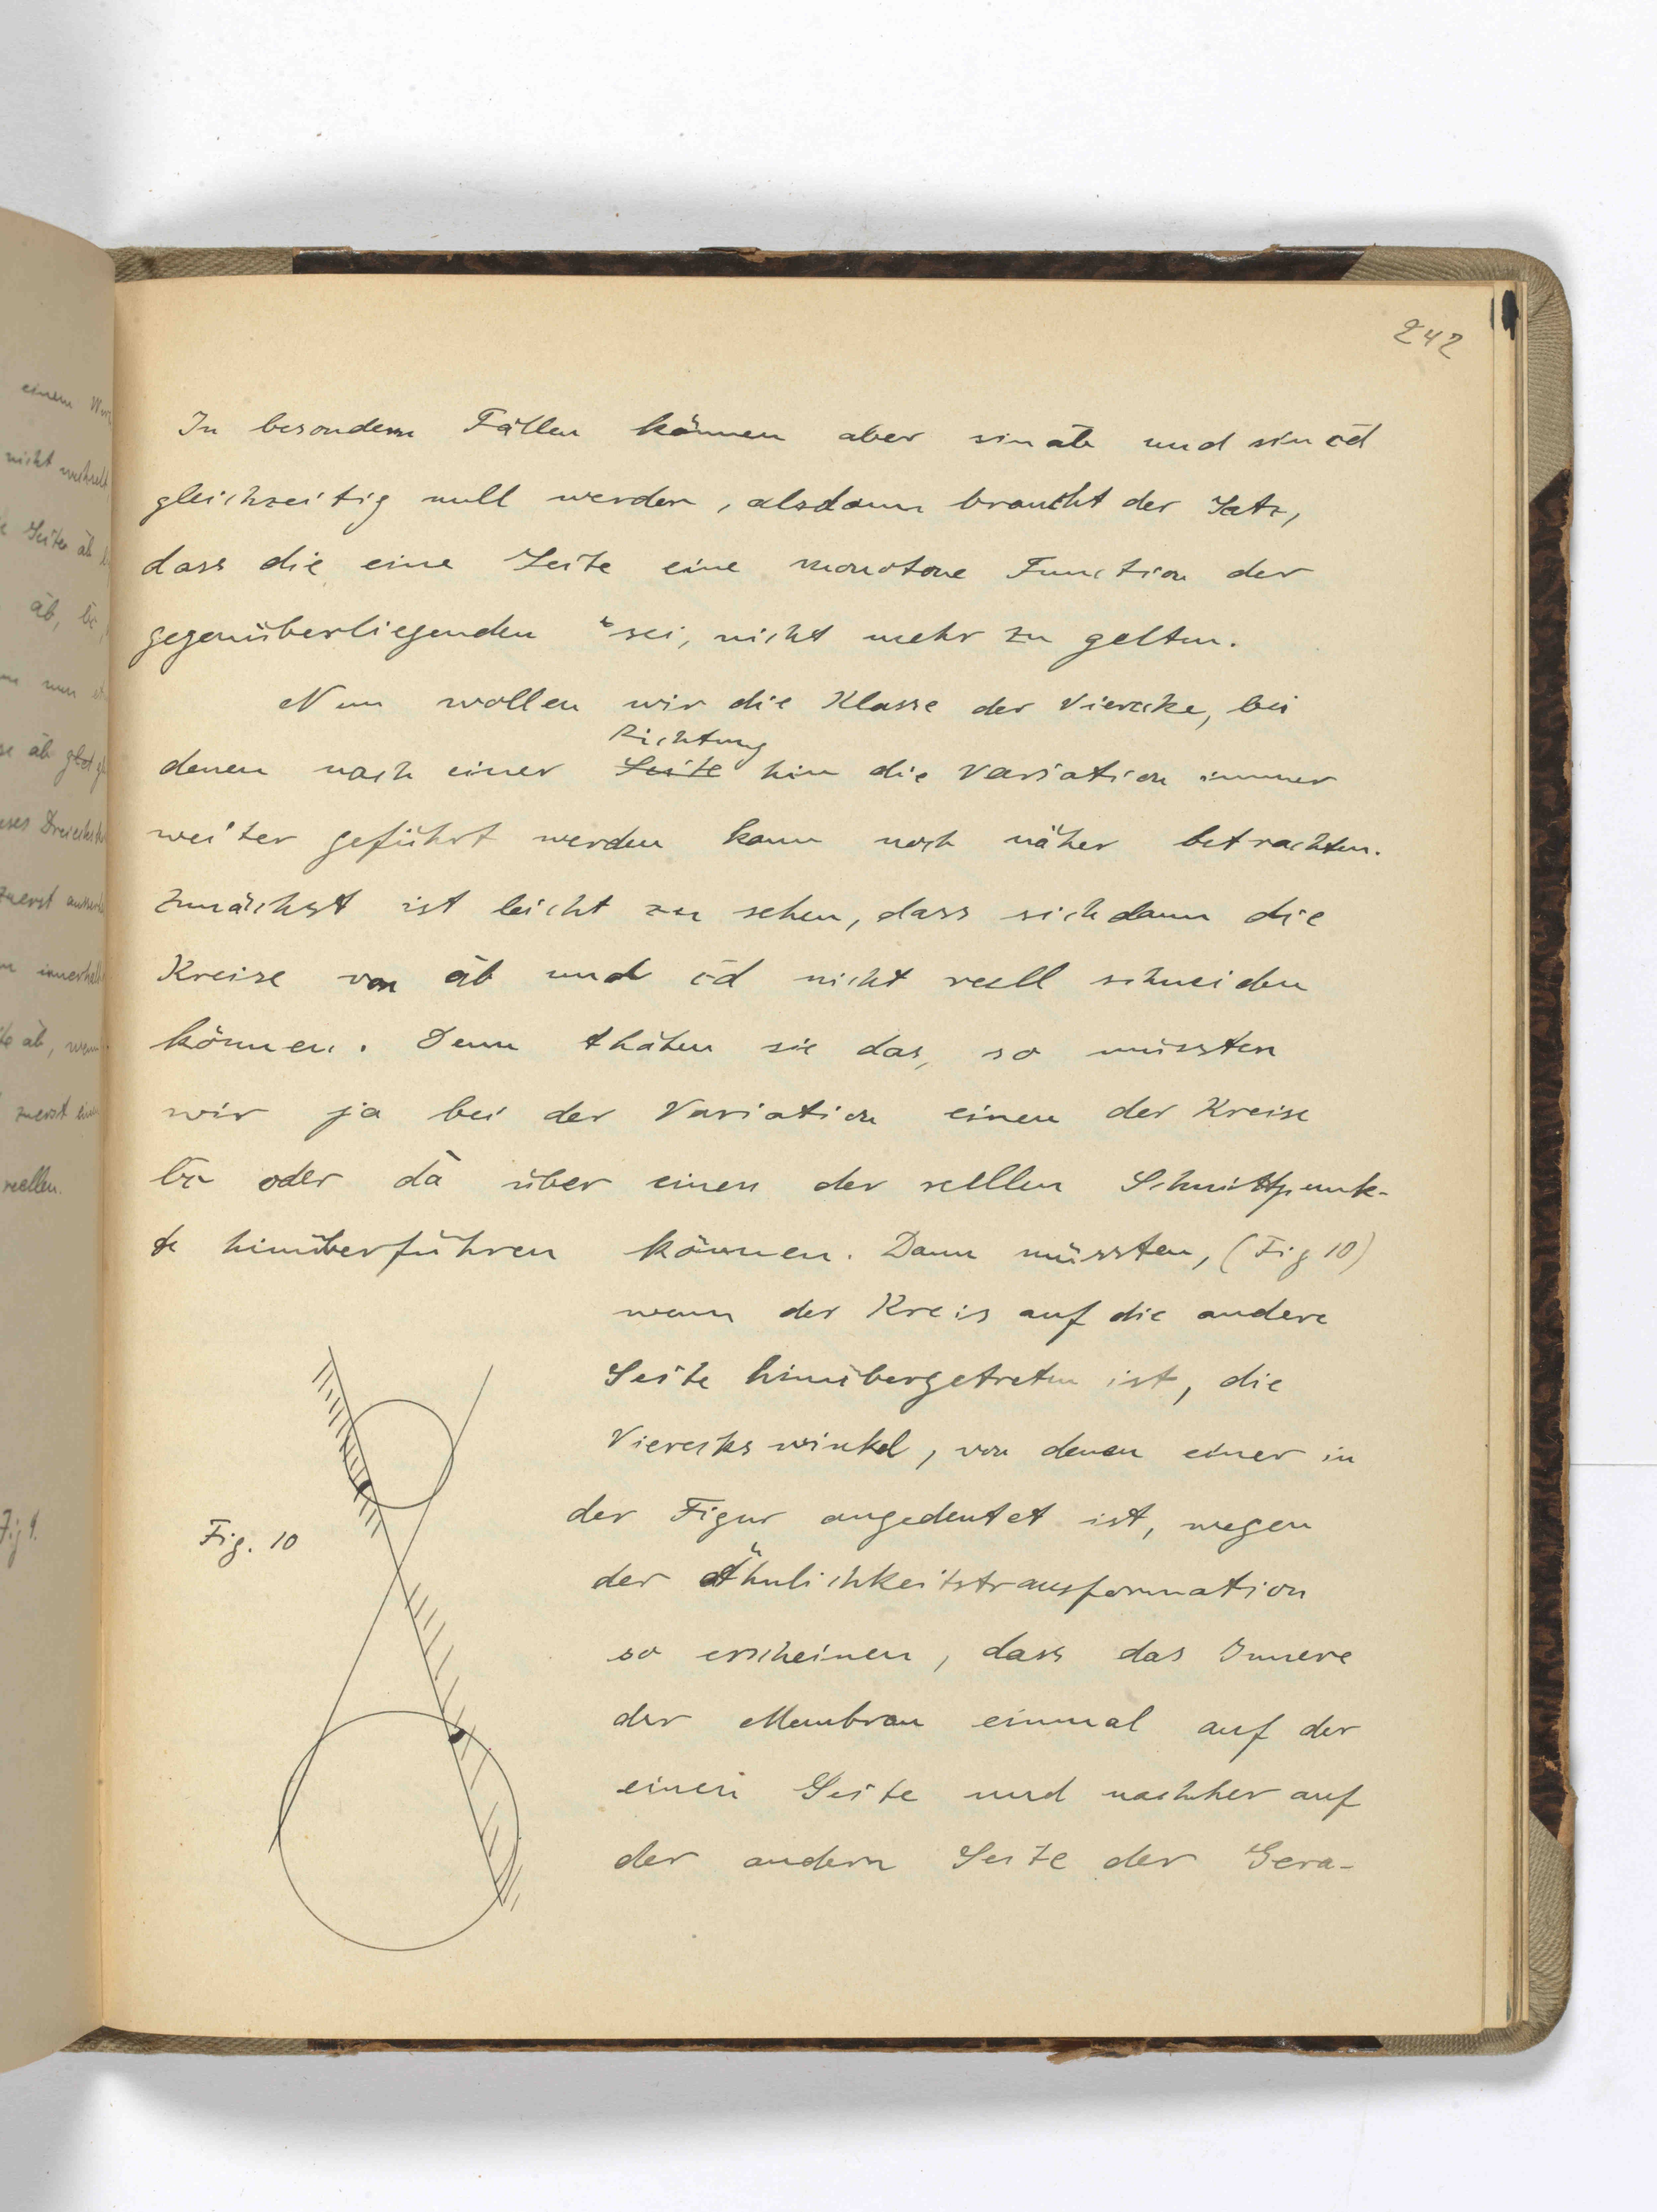 242
In besondern Fällen können aber sin a͞b und sin c͞d
gleichzeitig null werden, alsdann braucht der Satz,
dass die eine Seite eine monotone Function der
gegenüberliegenden sei, nicht mehr zu gelten.
Nun wollen wir die Klasse der Vierecke, bei
Richtung
denen nach einer Seite hin die Variation immer
weiter geführt werden kann noch näher betrachten.
Zunächst ist leicht zu sehen, dass sich dann die
Kreise von a͞b und c͞d nicht reell schneiden
können. Denn thäten sie das, so müssten
wir ja bei der Variation einen der Kreise
b͞c oder d͞a über einen der reellen Schnittpunk-
te hinüberführen können. Dann müssten, (Fig 10)
wenn der Kreis auf die andere
Seite hinübergetreten ist, die
Viereckswinkel, von denen einer in
der Figur angedeutet ist, wegen
der Ähnlichkeitstransformation
so erscheinen, dass das Innere
der Membran einmal auf der
einen Seite und nachher auf
der andern Seite der Gera-
Fig. 10
einem
nicht wechselt
Seite a͞b
a͞b, b͞c,
nun
a͞b
Dreiecks
zuerst
innerhalb
a͞b, wenn
zuerst
reellen.
Fig 9.